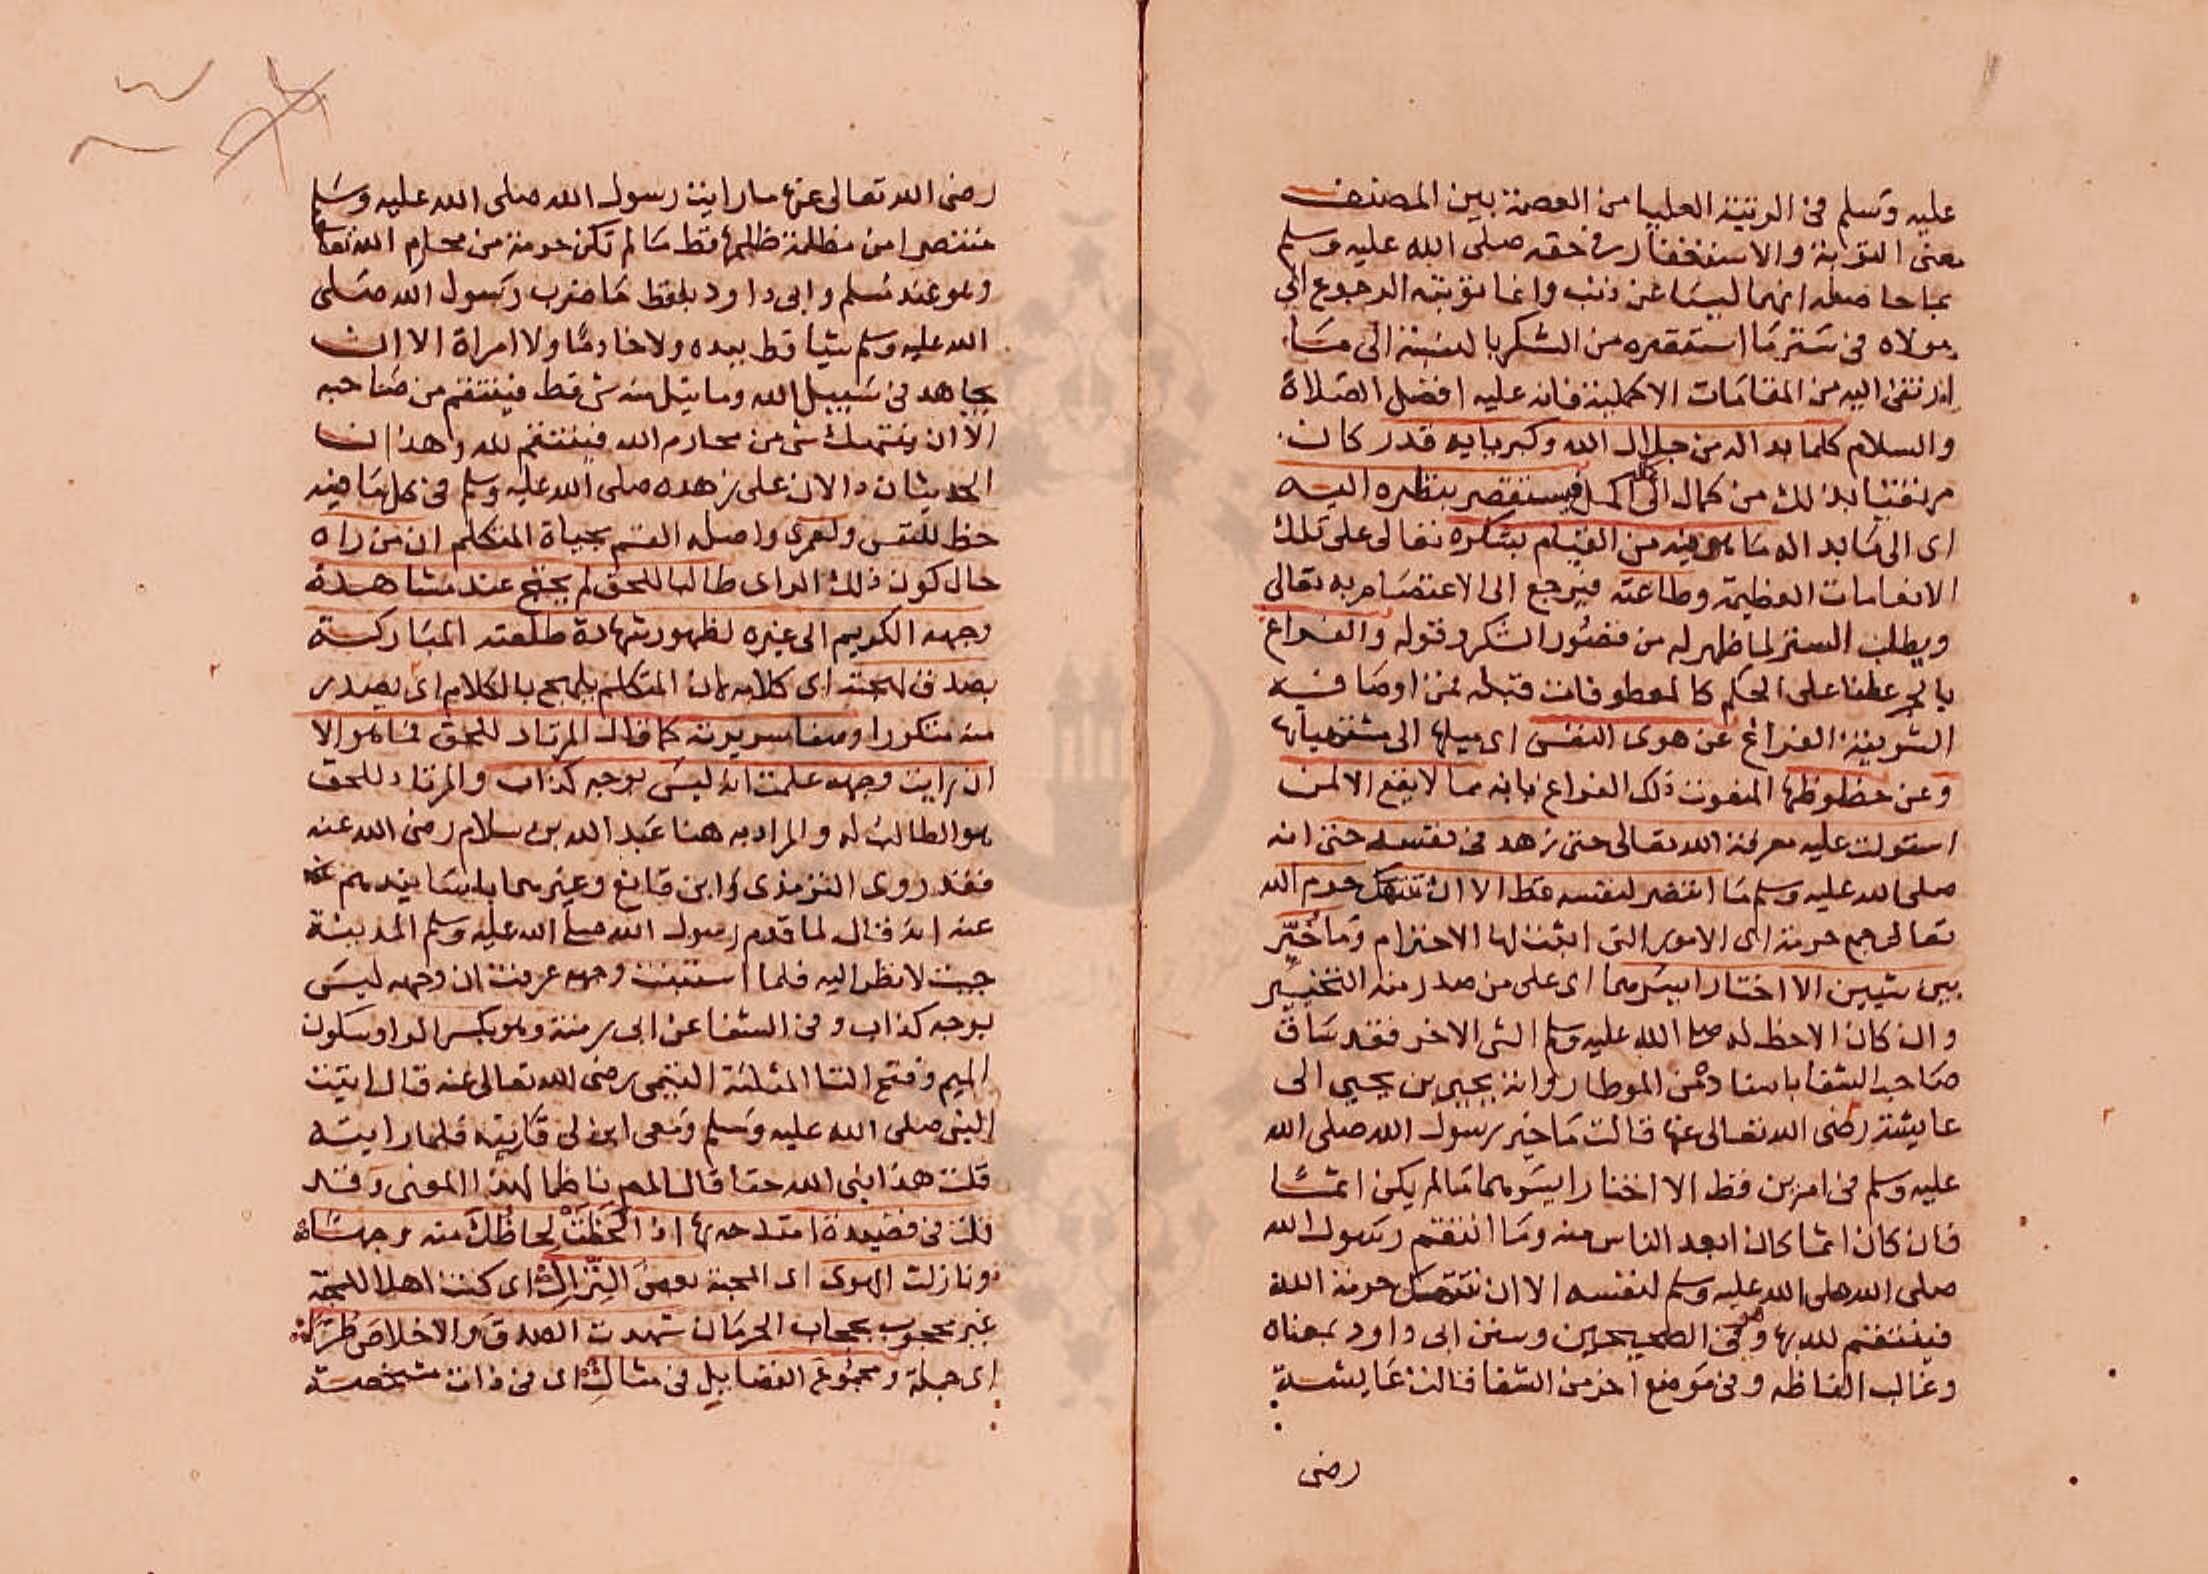 عليه وسلم في الرتبة العليا من العصمة بين المصنف
معنى التوبة والاستغفار في حقه صلى الله عليه وسلم
بما حاصله انهما ليسا عن ذنب وانما توبته الرجوع الى
مولاه في ستر ما استقصره من الشكر بالنسبة الى ما
ارتقى اليه من المقامات الاكملية فانه عليه افضل الصلاة
والسلام كلما بدا له من جلال الله وكبريايه قدر كان
مرتقيا بذلك من كمال الى اكمل فيستقصر بنظره اليه
اى الى ما بدا له ما هو فيه من القيام بشكره تعالى على تلك
الانعامات العظيمة وطاعته فيرجع الى الاعتصام به تعالى
ويطلب الستر لما ظهر له من قصور الشكر وقوله والفراغ
بالجر عطفا على الحكم كالمعطوفات قبله فمن اوصافه
الشريفة الفراغ عن هوى النفس اى ميلها الى مشتهياتها
وعن حظوظها المفوت ذلك الفراغ فانه مما لا يقع الا لمن
استولت عليه معرفة الله تعالى حتى زهد في نفسه حتى انه
صلى الله عليه وسلم ما انتصر لنفسه قط الا ان تنتهك حرم الله
تعالى جمع حرمة اى الامور التي اثبت لها الاحترام وما خُيّر
بين شيين الا اختار ايسرهما اى على من صدر منه التخيير
وان كان الاحظ له صلى الله عليه وسلم الشى الاخر فقد ساق
صاحب الشفا باسناده من الموطا رواية يحيى بن يحيى الى
عايشة رضى الله تعالى عنها قالت ما خير رسول الله صلى الله
عليه وسلم في امرين قط الا اختار ايسرهما ما لم يكن اثما
فان كان اثما كان ابعد الناس منه وما انتقم رسول الله
صلى الله صلى الله عليه وسلم لنفسه الا ان تنتهك حرمة الله
فينتقم لله بها وهو في الصحيحين وسنن ابى داود بمعناه
وغالب الفاظه وفي موضع اخر من الشفا قالت عايشة
رضى
رضى الله تعالى عنها ما رايت رسول الله صلى الله عليه وسلم
منتصرا من مظلمة ظلمها قط ما لم تكن حرمة من محارم الله تعالى
وهو عند مسلم وابى داود بلفظ ما ضرب رسول الله صلى
الله عليه وسلم شيا قط بيده ولا خادما ولا امراة الا ان
يجاهد في سبيل الله وما نيل منه شى قط فينتقم من صاحبه
الا ان ينتهك شى من محارم الله فينتقم لله وهذان
الحديثان دالان على زهده صلى الله عليه وسلم في كل ما فيه
حظ للنفس ولعمرى واصله القسم بحياة المتكلم ان من راه
حال كون ذلك الراى طالبا للحق لم يحتج عند مشاهدة
وجهه الكريم الى غيره لظهور شهادة طلعته المباركة
بصدق لهجته اى كلامه لان المتكلم يلهج بالكلام اى يصدر
منه متكررا وصفا سريرته كما قال المرتاد للحق فما هو الا
ان رايت وجهه علمت انه ليس بوجه كذاب والمرتاد للحق
هو الطالب له والمراد به هنا عبد الله بن سلام رضى الله عنه
فقد روى الترمذى وابن قانع وغيرهما باسانيدهم عنه
عنه انه قال لما قدم رسول الله صلى الله عليه وسلم المدينة
جيت لانظر اليه فلما استبنت وجهه عرفت ان وجهه ليس
بوجه كذاب وفي الشفا عن ابى رمثة وهو بكسر الرا وسكون
الميم وفتح الثا المثلثة التيمى رضى الله تعالى عنه قال اتيت
النبى صلى الله عليه وسلم ومعى ابن لى فاريته فلما رايته
قلت هذا نبى الله حقا قال المص ناظما لهذا المعنى وقد
قلت في قصيدة امتدحه بها اذا لحظت لحاظك منه وجها
ونازلت الهوى اى المحبة بعض النزال اى كنت اهلا للمحبة
غير محجوب بحجاب الحرمان شهدت الصدق والاخلاص طرا
اى جملة ومجموع الفضايل في مثال اى في ذات مشخصة